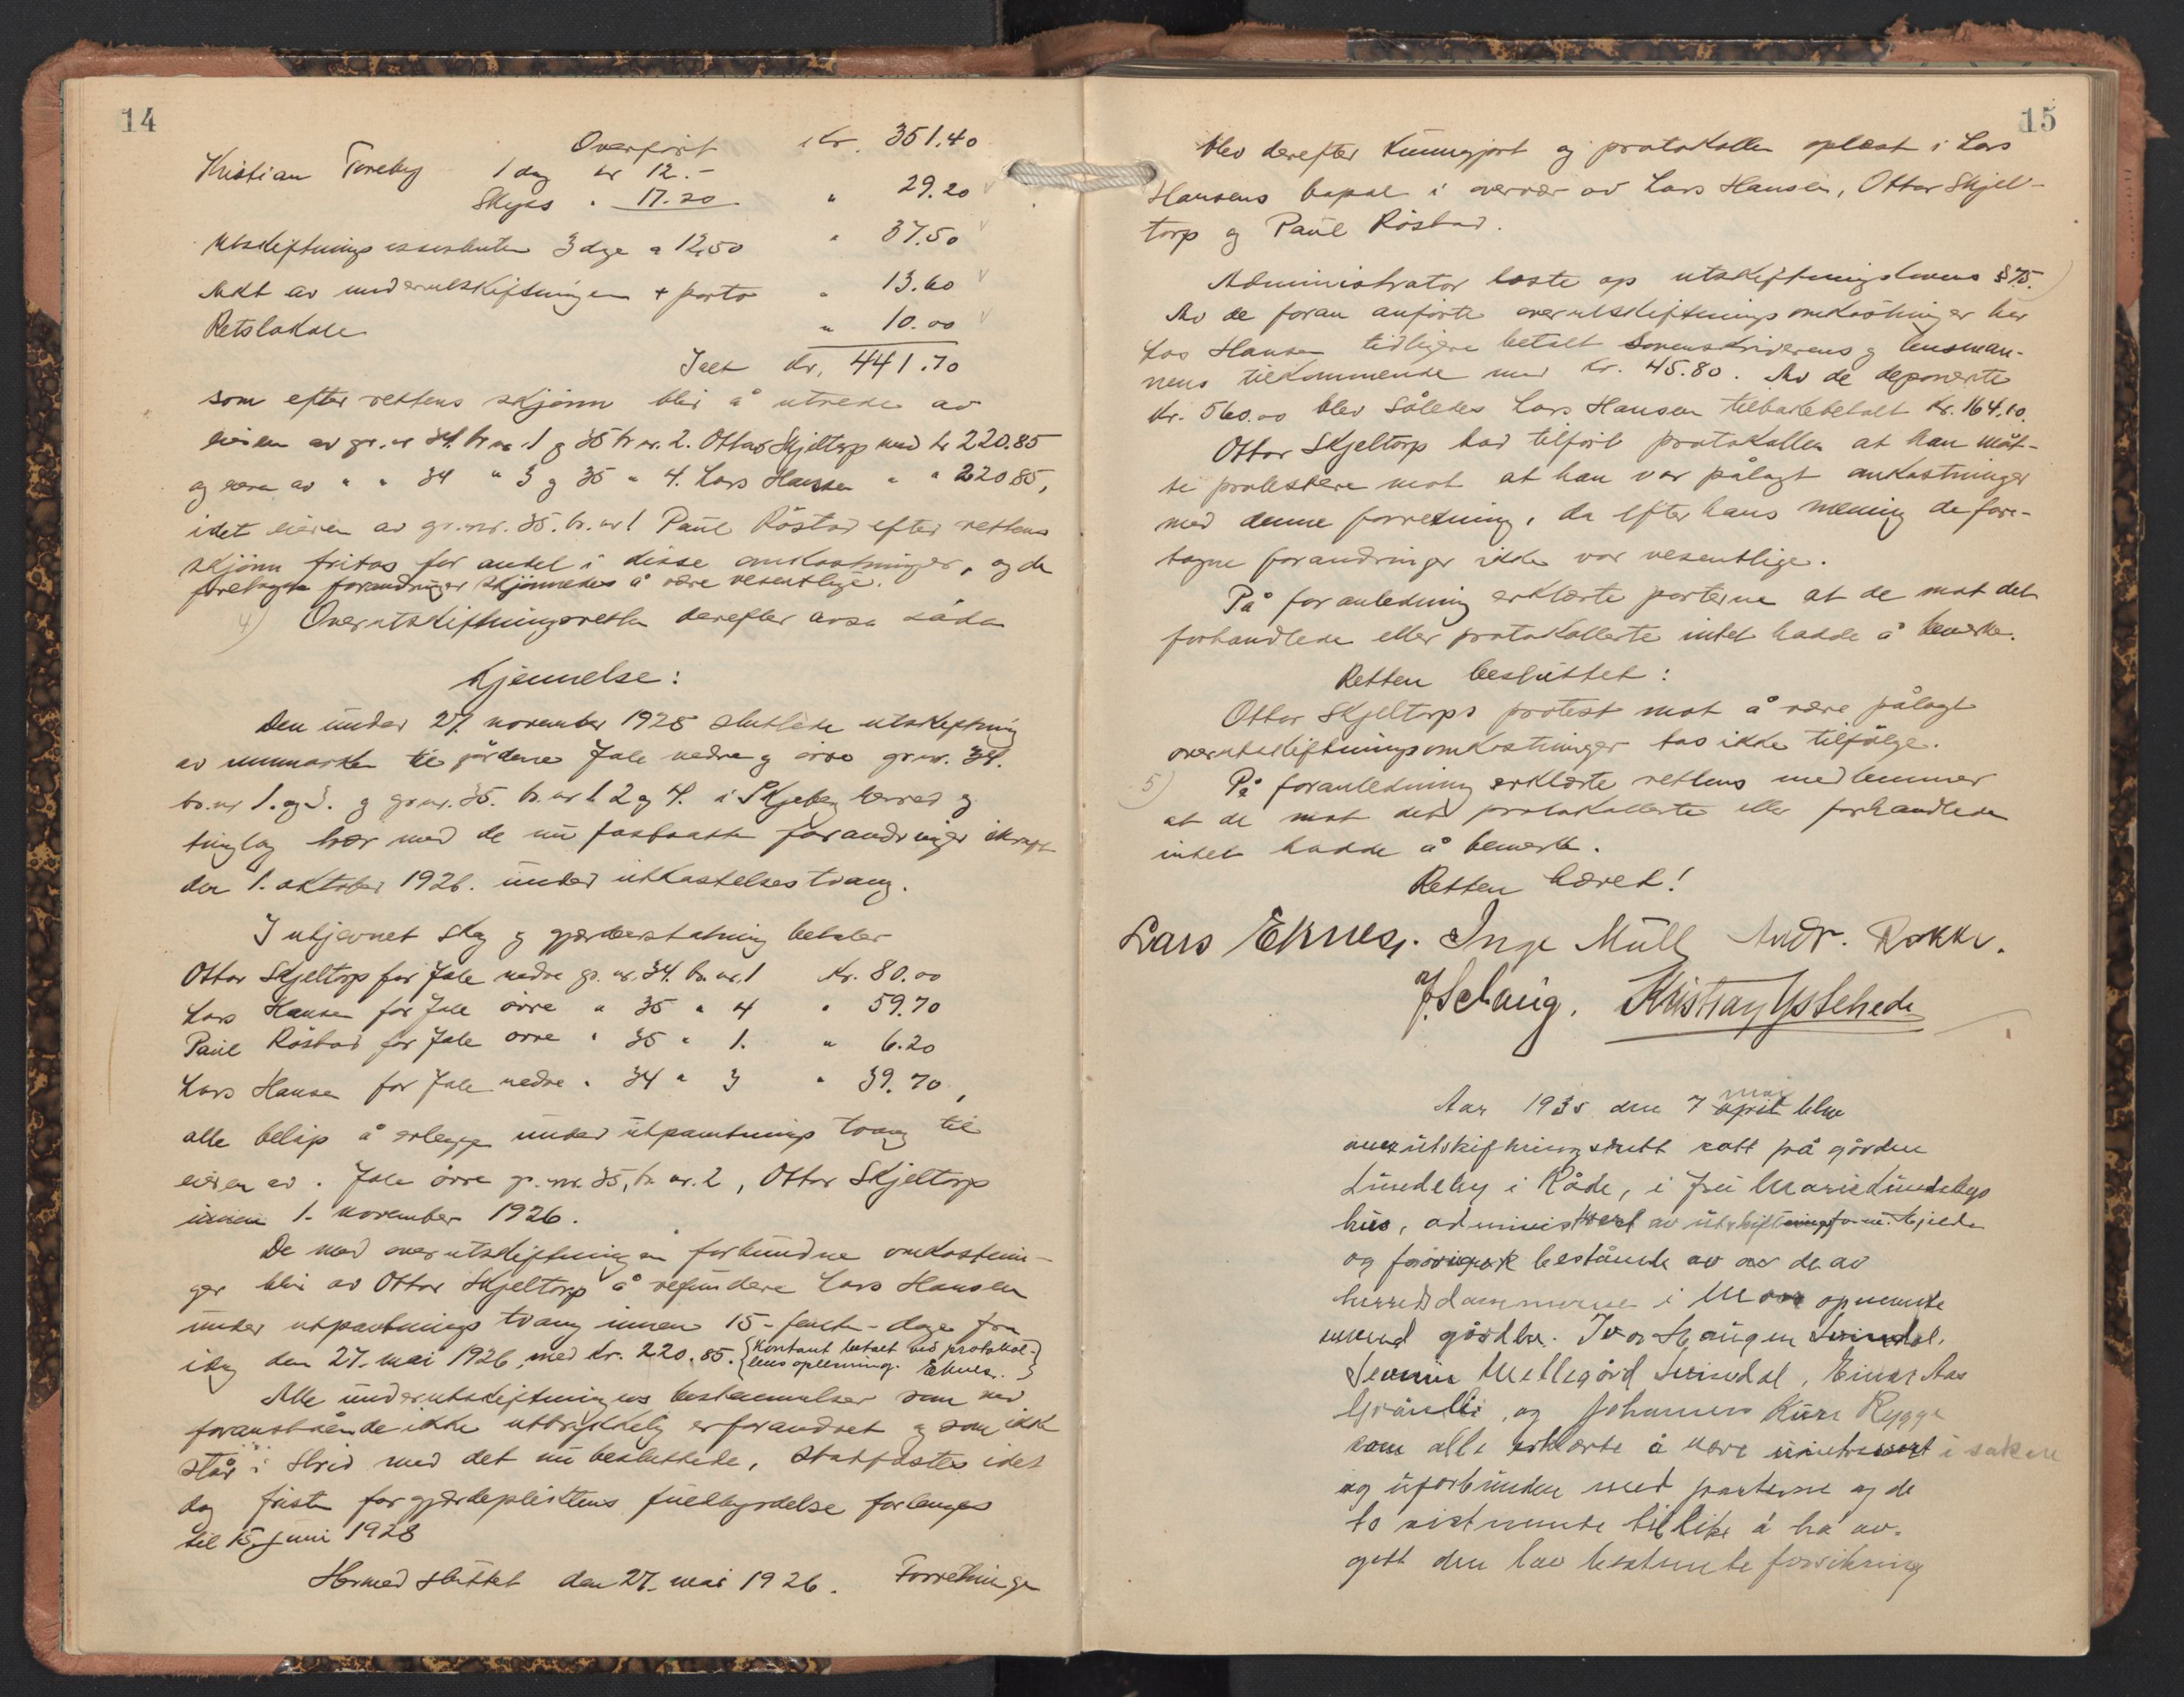 14
Overført Kr. 351.40
Kristian Toreby 1 dag kr 12.-
Skyss " 17.20 " 29.20
Utskiftningsassistenten 3 dage a 12,50 " 37.50
Avskt av underutskiftningen + porto " 13.60
Retslokale " 10.00
Ialt Kr. 441.70
som efter rettens skjønn blir å utrede av
eieren av gr.nr 34 br.nr. 1 og 35 br nr. 2. Ottar Skjeltorp med kr 220.85
og eieren av " " 34 " 3 og 35 " 4. Lars Hansen " " 220.85,
idet eieren av gr.nr. 35. br. nr 1 Paul Røstad efter rettens
skjønn fritas for andel i disse omkostninger, og de
foretagne forandringer skjønnedes å være vesentlige.
4) Overutskiftningsretten derefter avsa sådan
Kjennelse:
Den under 27. november 1925 sluttede utskiftning
av innmarken til gårdene Jale nedre og øvre gr.nr. 34.
br.nr 1. og 3. og gr.nr. 35. br. nr 1. 2 og 4. i Skjeberg herred og
tinglag bør med de nu fastsatte forandringer ikraft
den 1. oktober 1926. under utkastelsestvang.
I utjevnet skog og gjærdeerstatning betaler
Ottar Skjeltorp for Jale nedre gr. nr. 34. br. nr. 1 Kr. 80.00
Lars Hansen for Jale øvre " 35 " 4 " 59.70
Paul Røstad for Jale øvre " 35 " 1. " 6.20
Lars Hansen for Jale nedre " 34 " 3 " 39.70,
alle beløp å erlegge under utpantnings tvang til
eieren av . Jale øvre gr. nr. 35, br. nr. 2, Ottar Skjeltorp
innen 1. november 1926.
De med overutskiftningen forbundne omkostnin-
ger blir av Ottar Skjeltorp å refundere Lars Hansen
under utpantnings tvang innen 15-femten-dage fra
idag den 27. mai 1926, med kr. 220.85. {Kontant betalt ved protokol-
lens oplesning. Eknes.}
Alle underutskiftningens bestemmelser som ved
foranstående ikke uttrykkelig er forandret og som ikke
står i strid med det nu besluttede, stadfæstes idet
dog fristen for gjærdepliktens fuldbyrdelse forlenges
til 15 juni 1928
Hermed sluttet den 27. mai 1926. Forretningen
15
blev derefter kunngjort og protokollen oplæst i Lars
Hansens bopæl i overvær av Lars Hansen, Ottar Skjel-
torp og Paul Røstad.
Administrator læste op utskiftningslovens § 75.
Av de foran anførte overutskiftnings omkostninger har
Lars Hansen tidligere betalt Sorenskriverens og lensman-
nens tilkommende med kr. 45.80. Av de deponerte
Kr. 560.00 blev således Lars Hansen tilbakebetalt Kr. 164.10.
Ottar Skjeltorp bad tilført protokollen at han måt-
te protestere mot at han var pålagt omkostninger
med denne forretning, da efter hans mening de fore-
tagne forandringer ikke var vesentlige.
På foranledning erklærte parterne at de mot det
forhandlede eller protokollerte intet hadde å bemerke.
Retten besluttet:
Ottar Skjeltorps protest mot å være pålagt
overutskiftningsomkostninger tas ikke tilfølge.
5) På foranledning erklærte rettens medlemmer
at de mot det protokollerte eller forhandlede
intet hadde å bemerke.
Retten hævet!
Lars Eknes. Inge Müll Andr. Rokke.
J. Schaug. Kristian Ystehede
Aar 1935 den 7 april mai blev
overutskiftningsrett satt på gården
Lundeby i Råde, i fru Marie Lundebys
hus, administrert av utskiftningsform. Kjelde
og forøvrig bestående av av de av
herredsdommeren i Moss opnevnte
menn gårdbr. Ivar Haugen Svindal,
Severin Mellegård Svindal, Einar Aas
og Johannes Kure Rygge
som alle erklærte å være uinteressert i saken
og uforbunden med parterne og de
to sistnevnte tillike å ha av-
gitt den lov bestemte forsikring